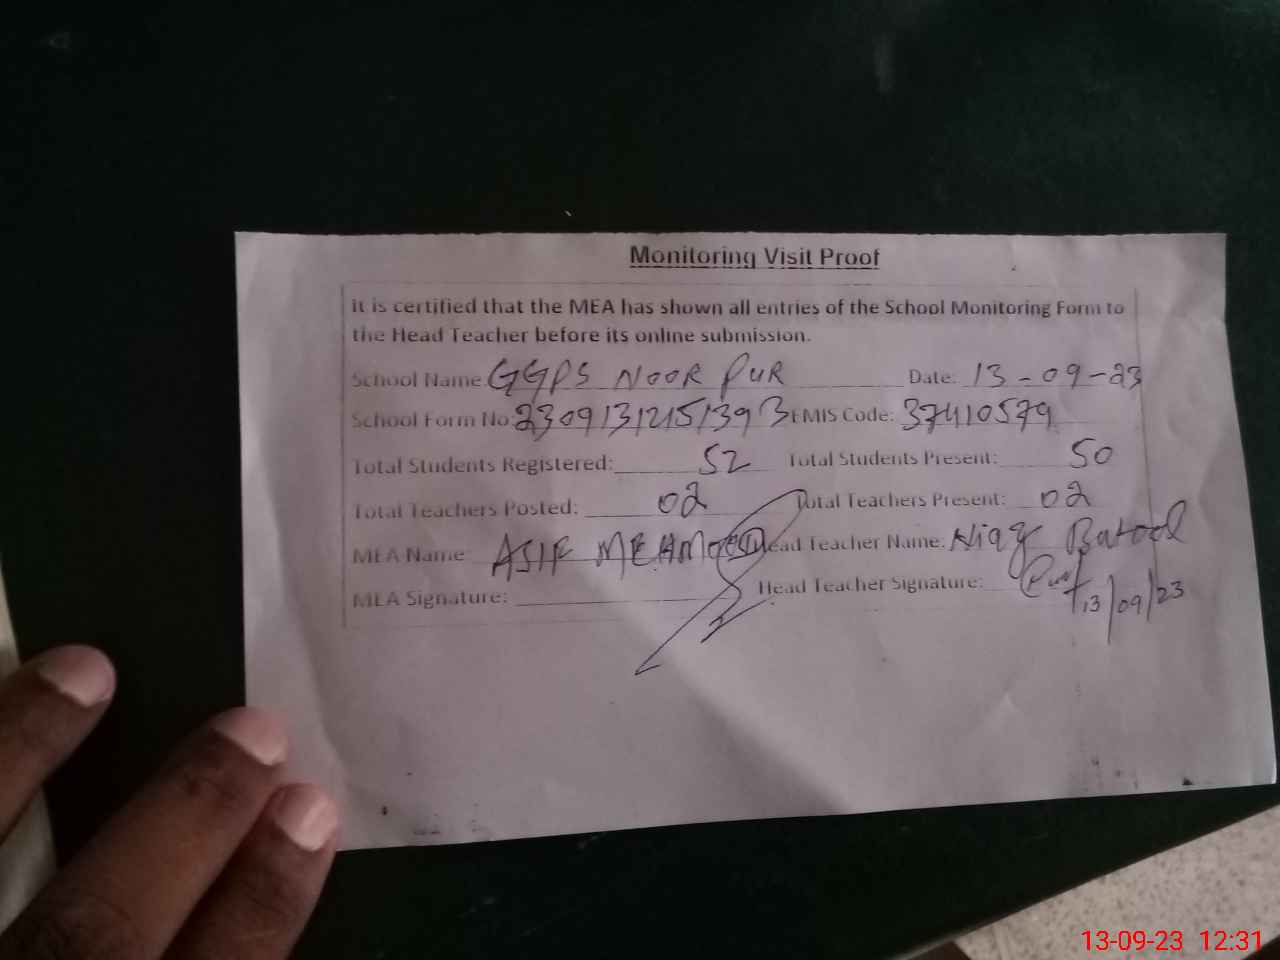 Monitoring Visit Proof
It is certified that the MEA has shown all entries of the School Monitoring Form to
the Head Teacher before its online submission.
School Name: GGPS NOOR PUR Date: 13-09-23
School Form No: 23091312151393 EMIS Code: 37410579
Total Students Registered: 52 Total Students Present: 50
Total Teachers Posted: 02 Total Teachers Present: 02
MEA Name ASIF Head Teacher Name: Batool
MEA Signature: Head Teacher Signature:
13/09/23
13-09-23 12:31